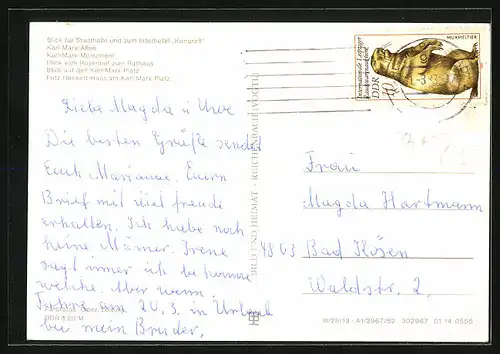 Blick zur Stadthalle und zum Interhotel „Kongreß"
Karl-Marx-Allee
Karl-Marx-Monument
Blick vom Rosenhof zum Rathaus
Blick auf den Karl-Marx-Platz
Fritz-Heckert-Haus am Karl-Marx-Platz
Liebe Magda u Uwe
Die besten Grüße sendet
Euch Marianne. Euern
Brief mit viel freude
erhalten. Ich habe noch
keine Männer. Irene
sagt immer ich bekomme
welche. Aber wenn.
Fahre am 20. 3. in Urlaub
bei mein Bruder.
BILD UND HEIMAT · REICHENBACH (VOGTL)
MURMELTIER
Internationale Leipziger
Rauchwarenauktion
DDR
10
Frau
Magda Hartmann
4803 Bad Kösen
Waldstr. 2.
III/26/13 · A1/2967/82 302967 01 14 0555